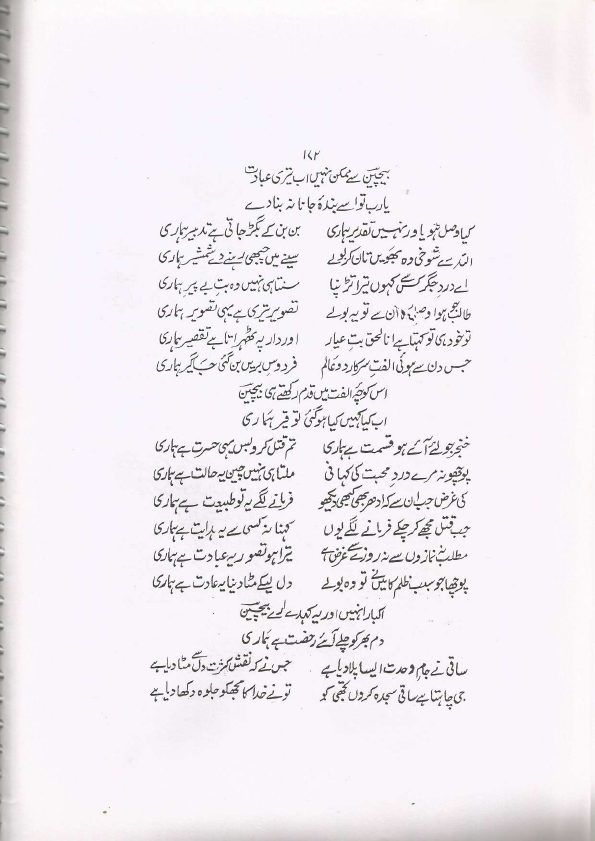 ۱۷۲
بیچینؔ سے ممکن نہیں اب تیری عبادت
یارب تو اسے بندۂ جانانہ بنا دے
کیا وصل ہو یاور نہیں تقدیر ہماری بن بن کے بگڑ جاتی ہے تدبیر ہماری
اللہ رے شوخی وہ بھویں تان کر بولے سینے میں چبھی رہنے دے شمشیر ہماری
اے دردِ جگر کس سے کہوں تیرا تڑپنا سنتا ہی نہیں وہ بتِ بے پیر ہماری
طالب جو ہوا وصل کا ان سے تو یہ بولے تصویر تری ہے یہی تصویر ہماری
تو خود ہی تو کہتا ہے انا لحق بتِ عیار اور دار پہ ٹھہراتا ہے تقصیر ہماری
جس دن سے ہوئی الفتِ سرکار دو عالم فردوسِ بریں بن گئی جاگیر ہماری
اس کوچۂ الفت میں قدم رکھتے ہی بیچینؔ
اب کیا کہیں کیا ہو گئی توقیر ہماری
خنجر جو لئے آئے ہو قسمت ہے ہماری تم قتل کرو بس یہی حسرت ہے ہماری
پوچھو نہ مرے دردِ محبت کی کہانی ملتا ہی نہیں چین یہ حالت ہے ہماری
کی عرض جب ان سے کہ ادھر بھی کبھی دیکھو فرمانے لگے یہ تو طبیعت ہے ہماری
جب قتل مجھے کر چکے فرمانے لگے یوں کہنا نہ کسی سے یہ ہدایت ہے ہماری
مطلب نہ نمازوں سے نہ روزے سے غرض ہے تیرا ہو تصور یہ عبادت ہے ہماری
پوچھا جو سبب ظلم کا میں نے تو وہ بولے دل لیکے مٹا دینا یہ عادت ہے ہماری
اکبار انہیں اور یہ کہدے ارے بیچینؔ
دم بھر کو چلے آئے رخصت ہے ہماری
ساقی نے جامِ وحدت ایسا پلا دیا ہے جس نے کہ نقشِ کثرت دل سے مٹا دیا ہے
جی چاہتا ہے ساقی سجدہ کروں تجھی کو تو نے خدا کا مجھکو جلوہ دکھا دیا ہے